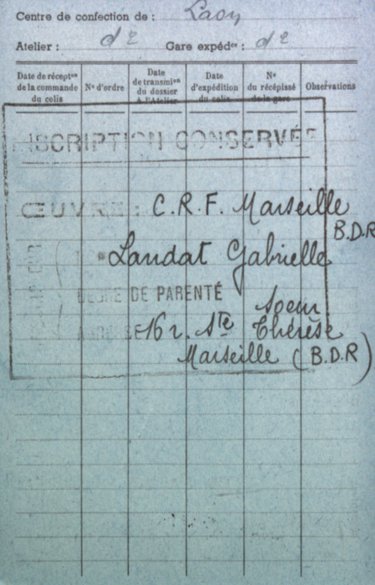 Centre de confection de : Lacy
Atelier : d° Gare expédre : d°
Date de récepton de la commande du colis
N° d'ordre
Date de transmion du dossier à l'Atelier
Date d'expédition du colis
N° du récépissé de la gare
Observations
INSCRIPTION CONSERVÉE
ŒUVRE : C.R.F. Marseille
B.D.R
Landat Gabrielle
DEGRÉ DE PARENTÉ Soeur
16 r. Ste Thérèse
Marseille (B.D.R)